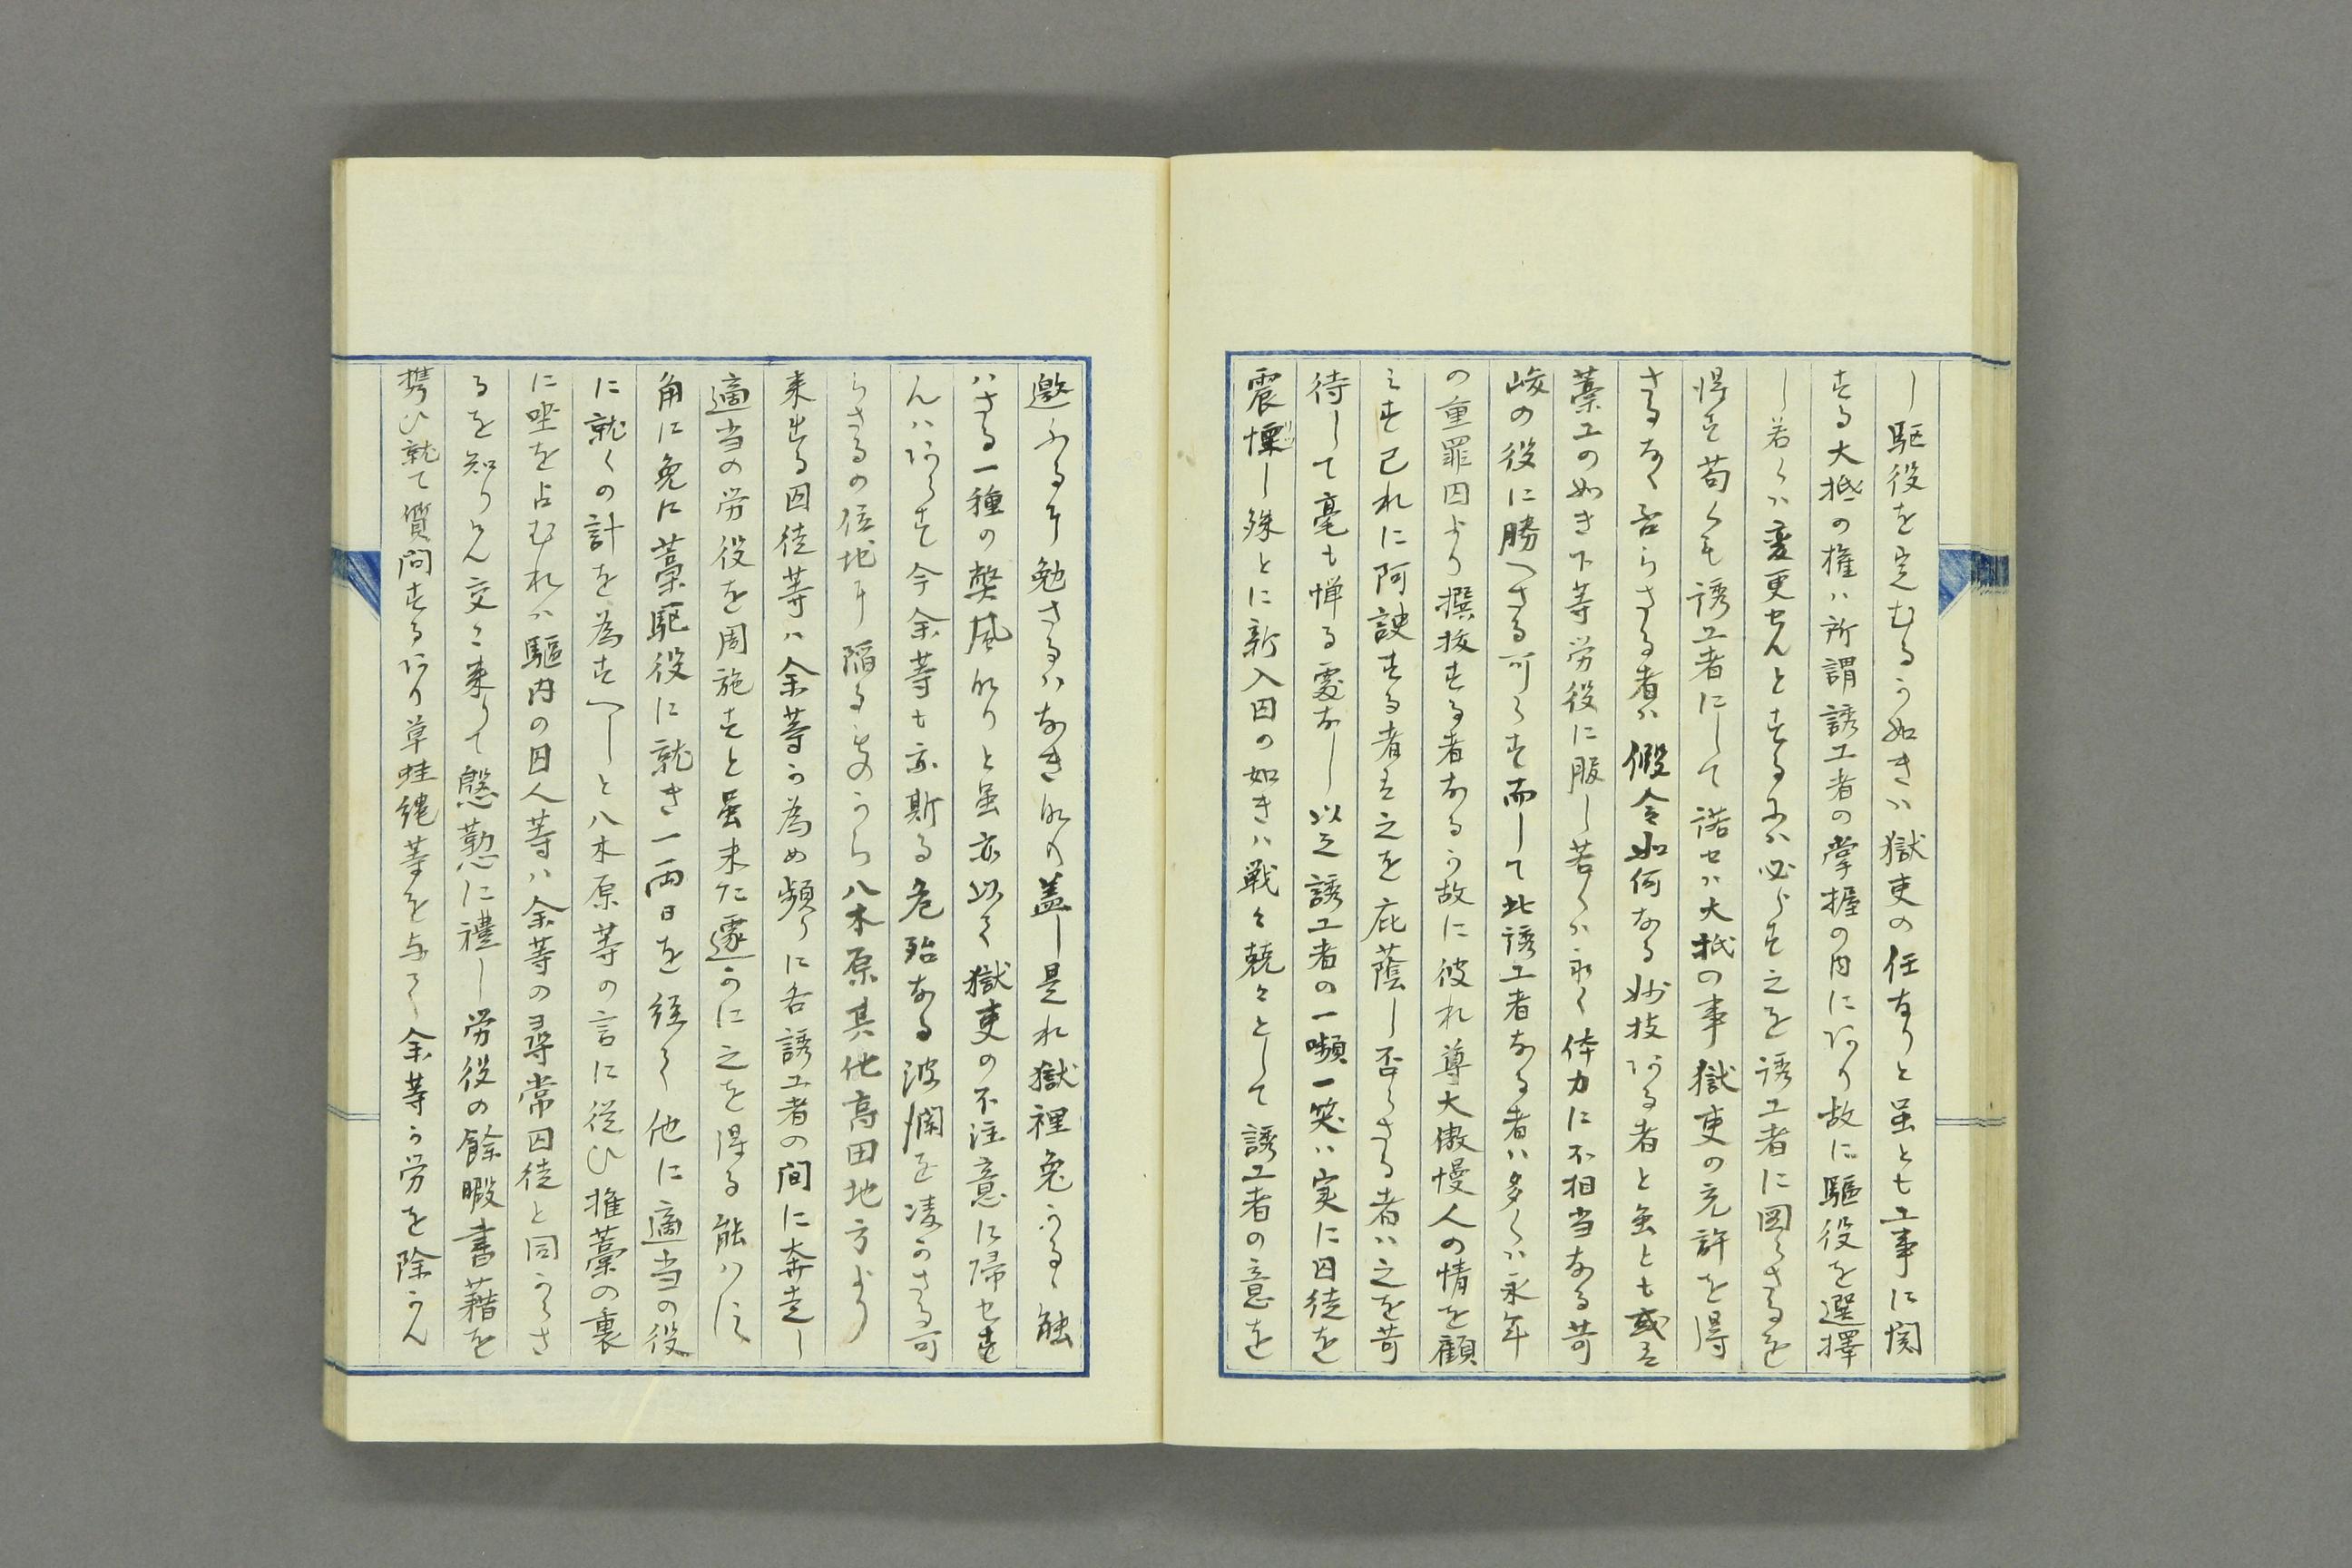 し駆役を定むるか如きハ獄吏の任なりと虽とも工事に関
する大抵の権ハ所謂誘工者の掌握の内にあり故に駆役を選擇
し若くハ変更せんとするにハ必らす之を誘工者に図らさるを
得す苟くも誘工者にして諾せハ大抵の事獄吏の允許を得
さるなく否らさる者ハ假令如何なる妙技ある者と虽とも或ハ
藁工の如き下等労役に服し若くハ永く体力に不相当なる苛
峻の役に勝へさる可らす而して此誘工者なる者ハ多くハ永年
の重罪囚より撰拔する者なるか故に彼れ尊大傲慢人の情を顧
ミす己れに阿諛する者ハ之を庇蔭し否らさる者ハ之を苛
待して毫も憚る處なし以之誘工者の一嚬一笑ハ実に囚徒を
震慄し殊とに新入囚の如きハ戦々兢々として誘工者の意を
邀ふるに勉さるハなきなり盖し是れ獄裡免かる、能
ハさる一種の獘風なりと虽亦以て獄吏の不注意に帰せす
んハあらす今余等も亦斯る危殆なる波瀾を凌かさる可
らさるの位地に陥るものから八木原其他高田地方より
来出る囚徒等ハ余等か為め頻りに各誘工者の間に奔走し
適当の労役を周施すと虽未た遽かに之を得る能ハす
角に兔に藁駆役に就き一両日を経て他に適当の役
に就くの計を為すへしと八木原等の言に従ひ推藁の裏
に坐を占むれハ驅内の囚人等ハ余等の尋常囚徒と同からさ
るを知りけん交々来りて慇懃に禮し労役の餘暇書藉を
携ひ就て質問するあり草鞋縄等を与へて余等か労を除かん